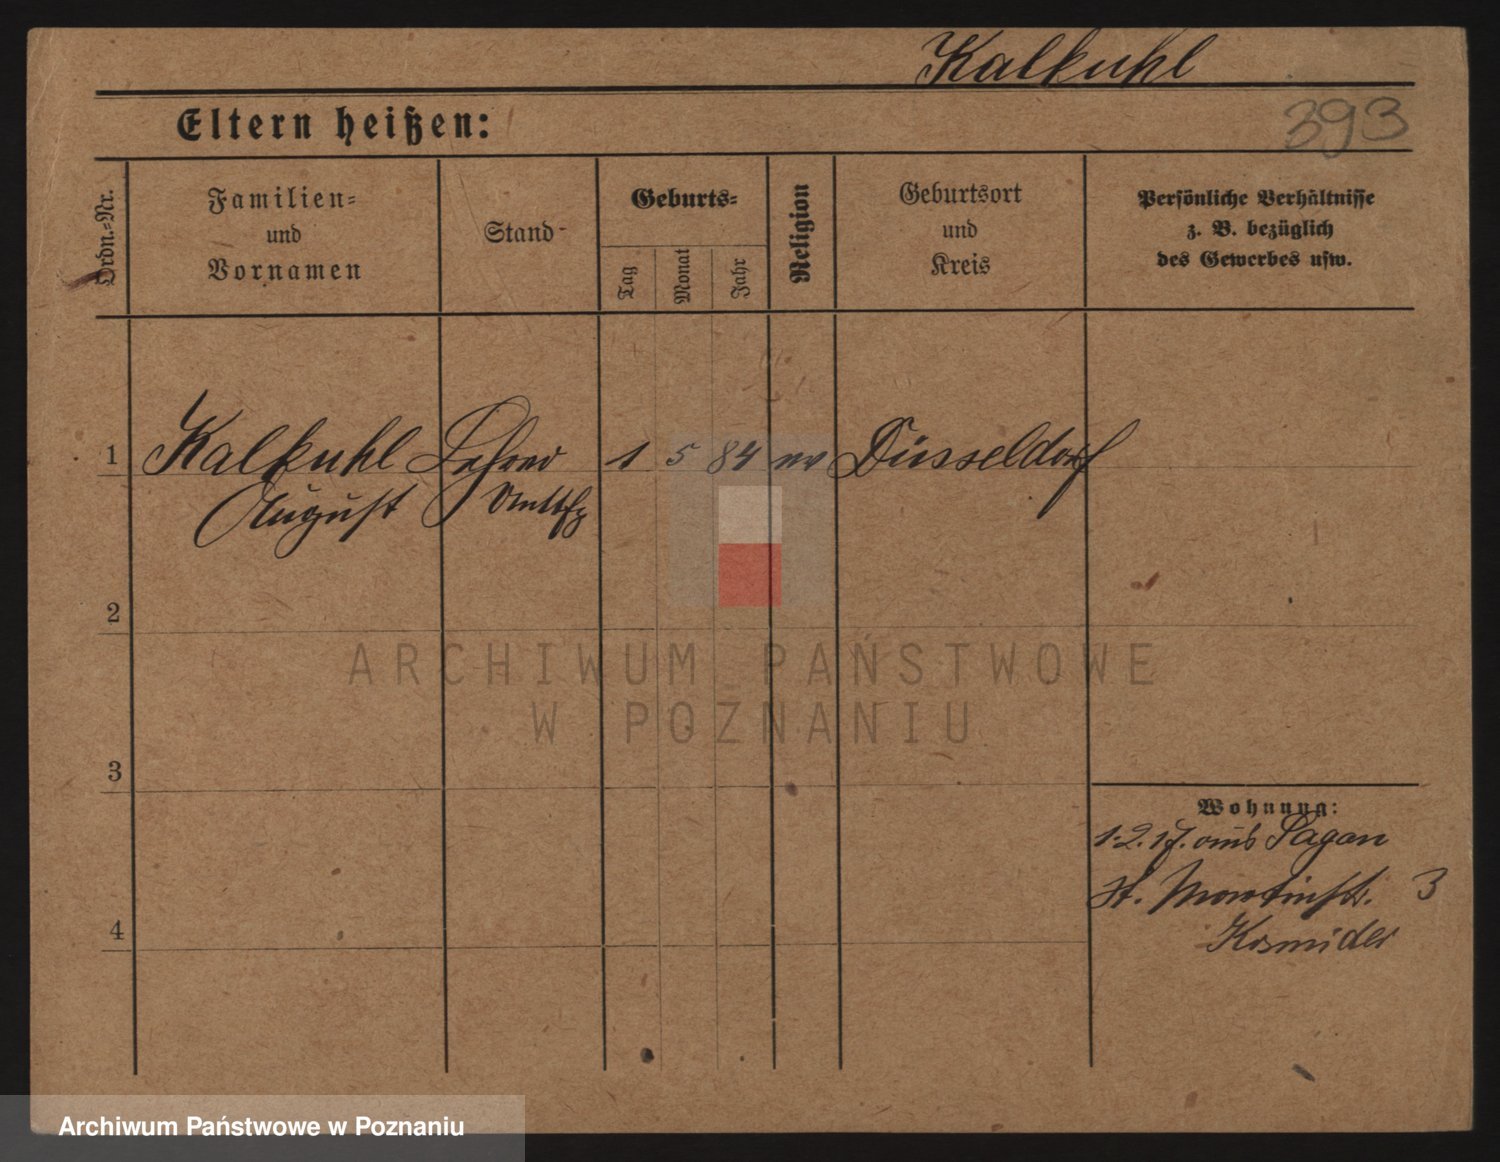 Kalkuhl
393
Eltern heißen:
Ordn.-Nr.
Familien-
und
Vornamen
Stand
Geburts-
Tag
Monat
Jahr
Religion
Geburtsort
und
Kreis
Persönliche Verhältnisse
z. B. bezüglich
des Gewerbes usw.
1 Kalkuhl Lehrer 1 5 84 ev Düsseldorf
August
2
ARCHIWUM PAŃSTWOWE
W POZNANIU
3
Wohnung:
1.2.17. aus Sagan
St. Martinstr. 3
4
Kosmider
Archiwum Państwowe w Poznaniu